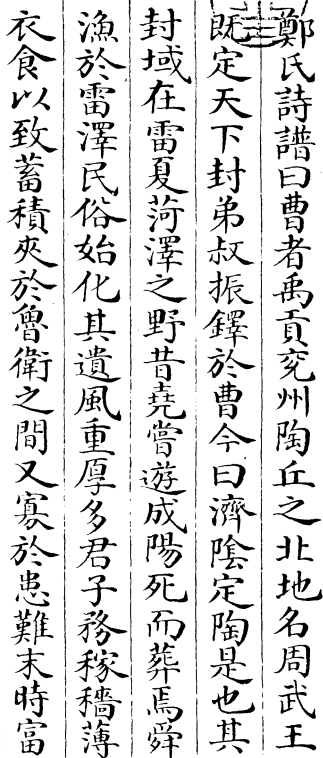 鄭氏詩譜曰曹者禹貢兖州陶丘之北地名周武王
既定天下封弟叔振鐸於曹今曰濟陰定陶是也其
封域在雷夏菏澤之野昔堯嘗遊成陽死而葬焉舜
漁於雷澤民俗始化其遺風重厚多君子務稼穡薄
衣食以致蓄積夾於魯衛之間又寡於患難末時富